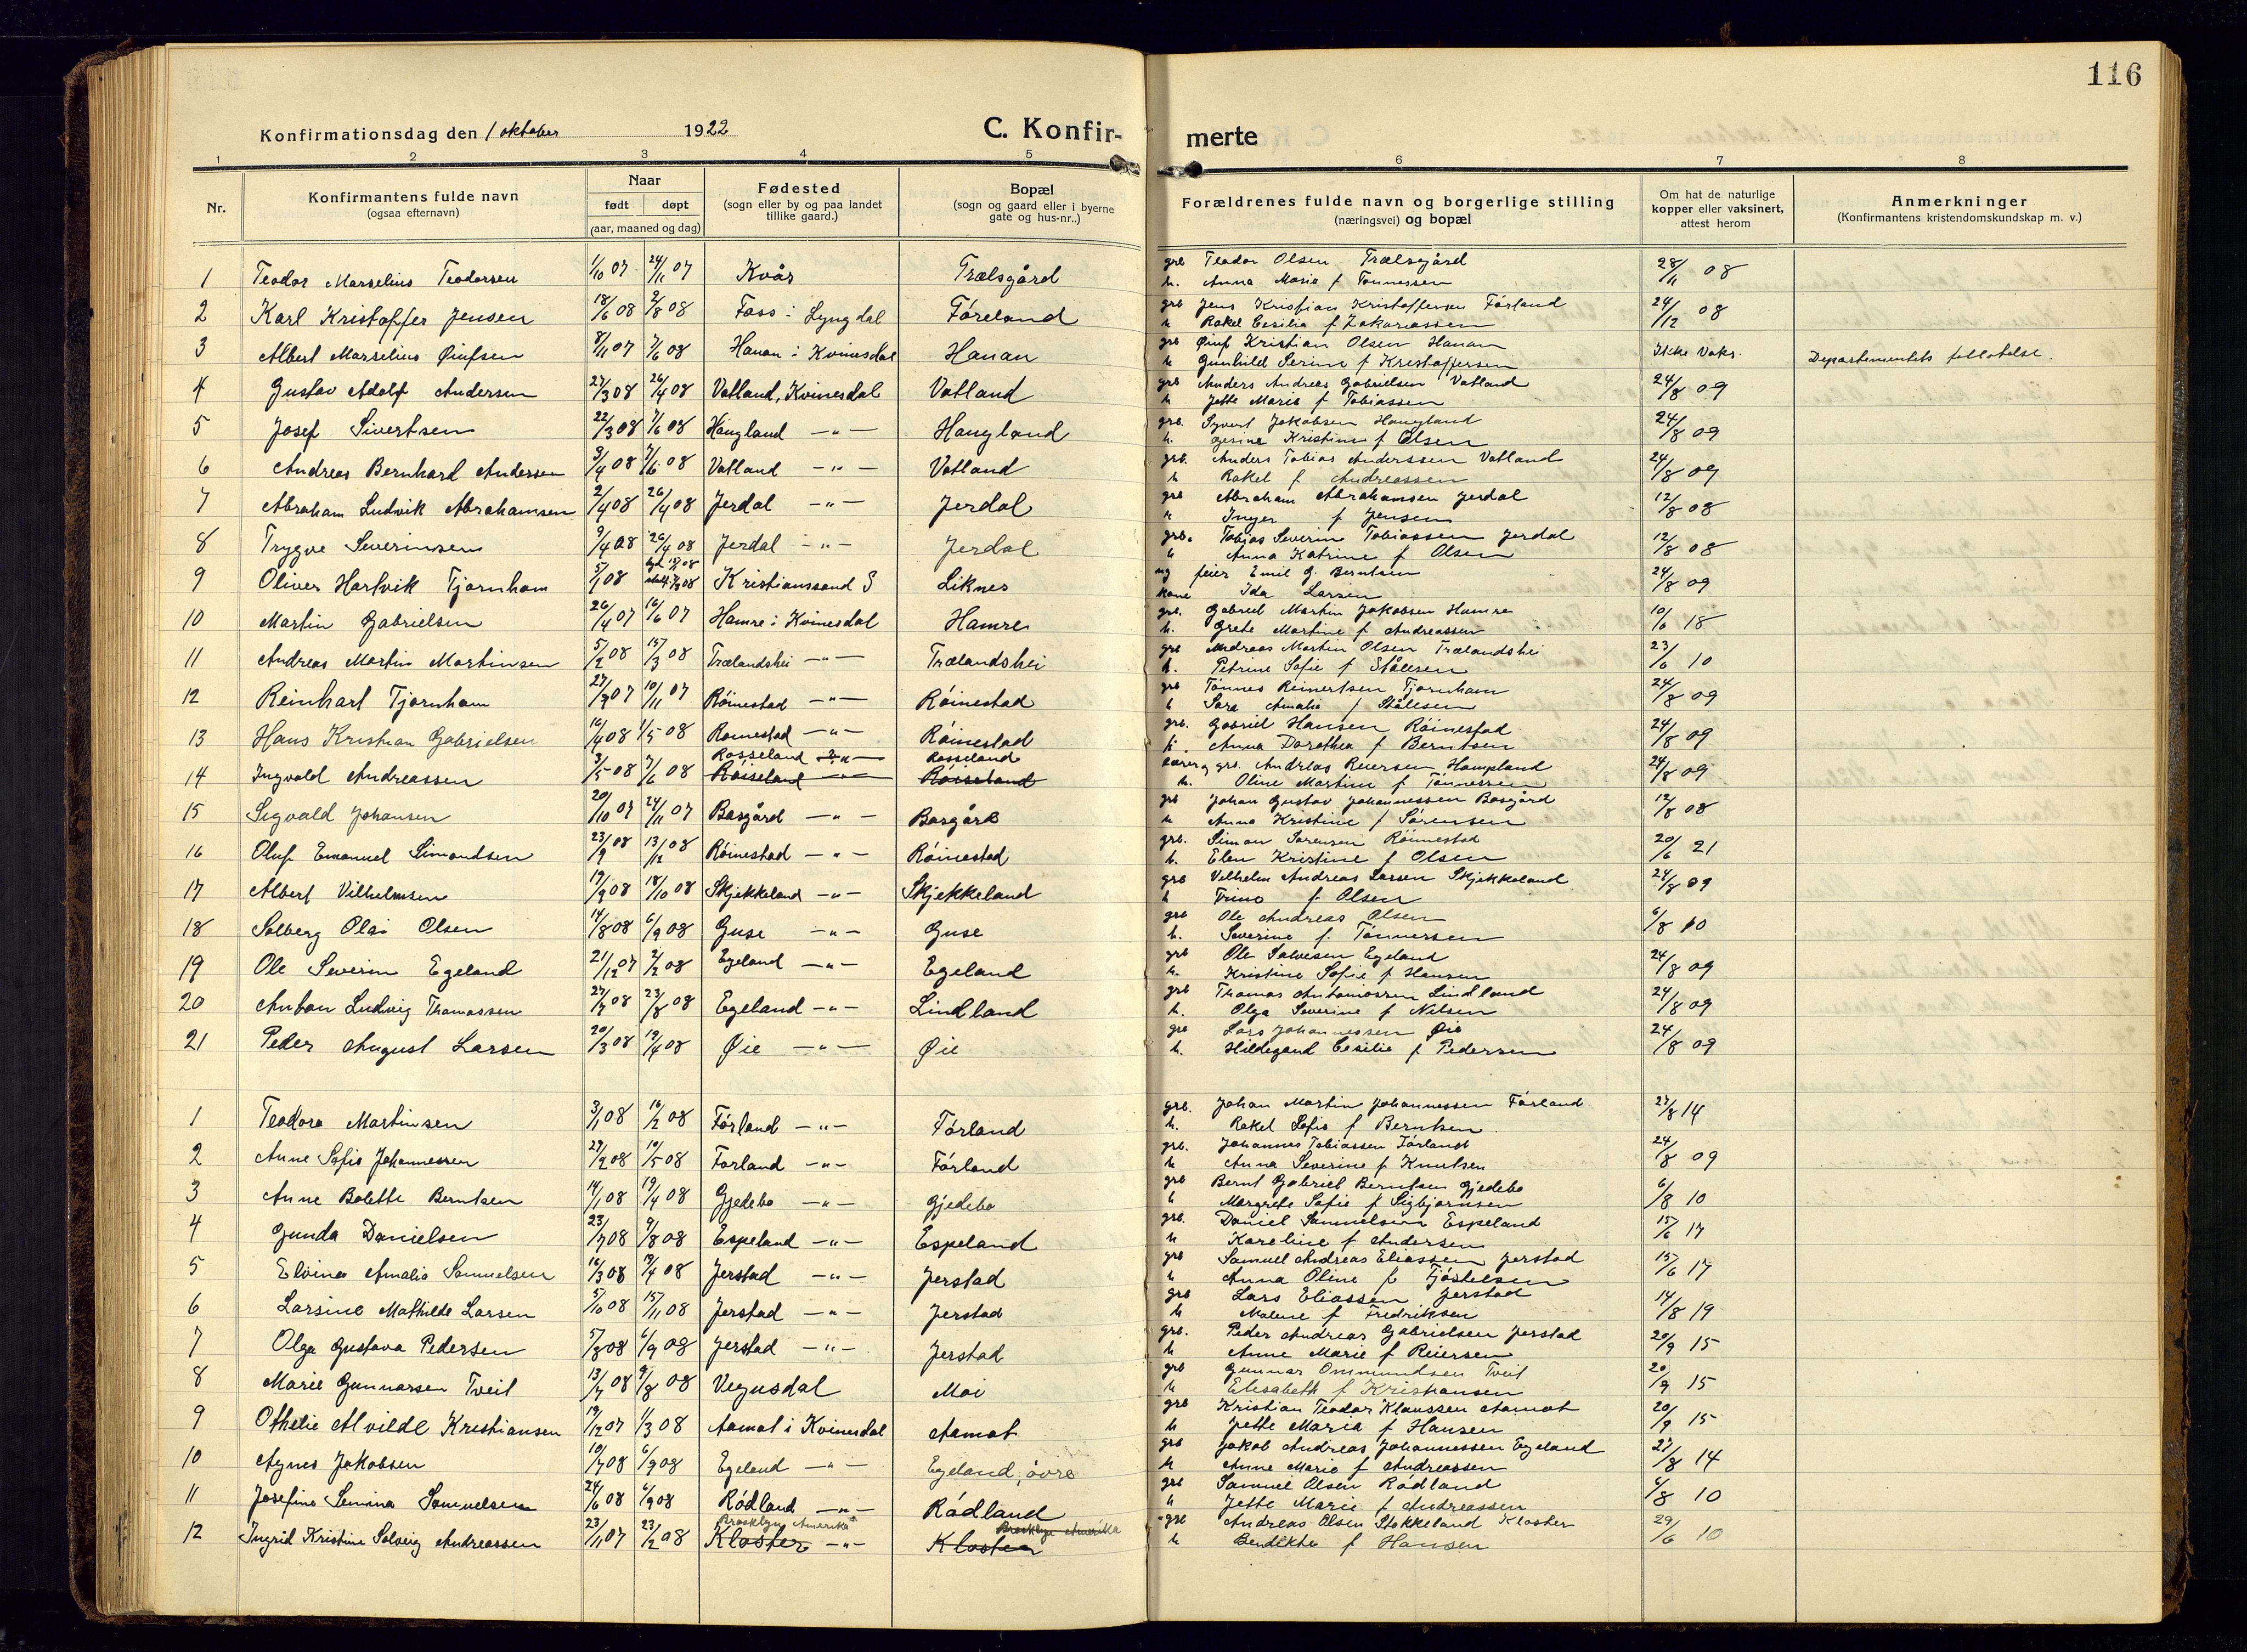 116
Konfirmationsdag den 1 oktober 1922
C. Konfir-
merte
1 2 3 4 5 6 7 8
Nr.
Konfirmantens fulde navn
(ogsaa efternavn)
Naar
født døpt
(aar, maaned og dag)
Fødested
(sogn eller by og paa landet
tillike gaard.)
Bopæl
(sogn og gaard eller i byerne
gate og hus-nr..)
Forældrenes fulde navn og borgerlige stilling
(næringsvei) og bopæl
Om hat de naturlige
kopper eller vaksinert,
attest herom
Anmerkninger
(Konfirmantens kristendomskundskap m. v.)
1 Teodor Marselius Teodorsen 1/10 07 24/11 07 Kvås Trælsgård
grb Teodor Olsen Trælsgård 28/11 08
h. Anna Maria f Tønnessen
2 Karl Kristoffer Jensen 18/6 08 2/8 08 Foss i Lyngdal Fóreland
grb Jens Kristian Kristoffersen Fórland 24/12 08
h Rakel Cesilia f Zakariassen
3 Albert Marselius Øiufsen 8/11 07 7/6 08 Hanan i Kvinesdal Hanan
grb Øiuf Kristian Olsen Hanan Ikke Vaks. Departementets tillatelse.
h Gunhild Serine f Kristoffersen
4 Gustav Adolf Andersen 27/3 08 26/4 08 Vatland, Kvinesdal Vatland
grb Anders Andreas Gabrielsen Vatland 24/8 09
h Jette Marie f Tobiassen
5 Josef Sivertsen 22/3 08 7/6 08 Haugland -"- Haugland
grb. Syvert Jakobsen Haugland 24/8 09
h. Gesine Kristine f Olsen
6 Andreas Bernhard Andersen 3/4 08 7/6 08 Vatland -"- Vatland
grb. Anders Tobias Anderssen Vatland 24/8 09
h Rakel f Andreassen
7 Abraham Ludvik Abrahamsen 2/4 08 26/4 08 Jerdal -"- Jerdal
grb Abraham Abrahamsen Jerdal 12/8 08
h Inger f Jensen
8 Trygve Severinsen 9/4 08 26/4 08 Jerdal -"- Jerdal
grb. Tobias Severin Tobiassen Jerdal 12/8 08
h Anna Katrine f Olsen
9 Oliver Hartvik Tjørnhom 5/1 08 Kristianssand S Liknes
ug feier Emil G. Berntsen 24/8 09
kone Ida Larsen
10 Martin Gabrielsen 26/4 07 16/6 07 Hamre i Kvinesdal Hamre
grb. Gabriel Martin Jakobsen Hamre 10/6 18
h. Grete Martine f Andreassen
11 Andreas Martin Martinsen 5/2 08 15/3 08 Trælandshei -"- Trælandshei
grb Andreas Martin Olsen Trælandshei 23/6 10
h. Petrine Sofie f Stålesen
12 Reinhart Tjørnhom 27/9 07 10/11 07 Róinestad -"- Róinestad
grb Tønnes Reinertsen Tjørnhom 24/8 09
h Sara Amalie f Stålesen
13 Hans Kristian Gabrielsen 16/4 08 1/5 08 Roinestad -"- Róinestad
grb. Gabriel Hansen Róinestad 24/8 09
h. Anna Dorothea f Berntsen
Rosseland -"- Rosseland
14 Ingvald Andreassen 3/5 08 7/6 08 Róiseland -"- Róiseland
lærer og grb. Andreas Reiersen Hompland 24/8 09
h. Oline Martine f Tønnessen
15 Sigvald Johansen 20/10 07 24/11 07 Basgård -"- Basgård
grb Johan Gustav Johannessen Basgård 12/8 08
h Anna Kristine f Sørensen
16 Oluf Emanuel Simondsen 23/9 08 13/12 08 Róinestad -"- Róinestad
grb. Simon Sørensen Róinestad 20/6 21
h. Elen Kristine f Olsen
17 Albert Vilhelmsen 19/9 08 18/10 08 Skjekkeland -"- Skjekkeland
grb Vilhelm Andreas Larsen Skjekkeland 24/8 09
h Trine f Olsen
18 Solberg Olai Olsen 14/8 08 6/9 08 Guse -"- Guse
grb Ole Andreas Olsen 6/8 10
h. Severine f. Tønnessen
19 Ole Severin Egeland 21/12 07 2/2 08 Egeland -"- Egeland
grb Ole Salvesen Egeland 24/8 09
h. Kristine Sofie f Hansen
20 Anton Ludvig Thomassen 27/7 08 23/8 08 Egeland -"- Lindland
grb Thomas Antoniossen Lindland 24/8 09
h. Olga Severine f Nilsen
21 Peder August Larsen 20/3 08 19/4 08 Øie -"- Øie
grb Lars Johannessen Øie 24/8 09
h. Hildegand Cesilie f Pedersen
1 Teodora Martinsen 3/1 08 16/2 08 Fórland -"- Fórland
grb. Johan Martin Johannessen Fórland 27/8 14
h. Rakel Sofie f Berntsen
2 Anne Sofie Johannessen 27/2 08 10/5 08 Forland -"- Fórland
grb. Johannes Tobiassen Fórland 24/8 09
h Anna Severine f Knutsen
3 Anne Bolette Berntsen 14/1 08 19/4 08 Gjedebo -"- Gjedebo
grb Bernt Gabriel Berntsen Gjedebo 6/8 10
h Margrete Sofie f Sigbjørnsen
4 Gunda Danielsen 23/7 08 9/8 08 Espeland -"- Espeland
grb. Daniel Samuelsen Espeland 15/6 17
h Karoline f Andersen
5 Elvina Amalia Samuelsen 16/3 08 19/4 08 Jerstad -"- Jerstad
grb Samuel Andreas Eliassen Jerstad 15/6 17
h Anna Oline f Tjóstelsen
6 Larsine Mathilde Larsen 5/10 08 15/11 08 Jerstad -"- Jerstad
grb Lars Eliassen Jerstad 14/8 19
h Malene f Fredriksen
7 Olga Gustava Pedersen 5/8 08 6/9 08 Jerstad -"- Jerstad
grb. Peder Andreas Gabrielsen Jerstad 20/9 15
h Anne Marie f Reiersen
8 Marie Gunnarsen Tveit 13/7 08 9/8 08 Vegusdal Moi
grb Gunnar Ommundsen Tveit 20/9 15
h Elisabeth f Kristiansen
9 Othelie Alvilde Kristiansen 19/12 07 1/3 08 Aamot i Kvinesdal Aamot
grb Kristian Teodor Klaussen Aamot 20/9 15
h Jette Maria f Hansen
10 Agnes Jakobsen 10/7 08 6/9 08 Egeland -"- Egeland, óvre
grb Jakob Andreas Johannessen Egeland 27/8 14
h Anne Marie f Andreassen
11 Josefine Semine Samuelsen 24/6 08 6/9 08 Ródland -"- Ródland
grb Samuel Olsen Ródland 6/8 10
h Jette Marie f Andreassen
Brooklyn Amerika Brooklyn Amerika
12 Ingrid Kristine Solveig Andreassen 23/11 07 23/2 08 Kloster -"- Kloster
grb Andreas Olsen Stokkeland Kloster 29/6 10
h Bendikte f Hansen